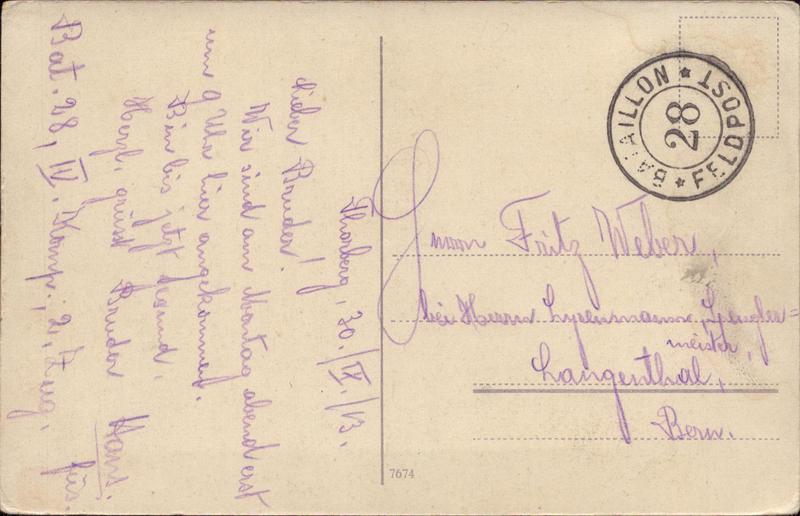 Thorberg, 30./IX./13.
Lieber Bruder!
Wir sind am Montag abend erst
um 9 Uhr hier angekommen.
Bin bis jetzt gesund.
Herzl. grüsst Bruder Hans.
Füs.
Bat. 28, IV. Komp., 2. Zug.
BATAILLON
28
FELDPOST
Herrn Fritz Weber,
bei Herrn Spengler=
meister,
Langenthal,
Bern.
7674